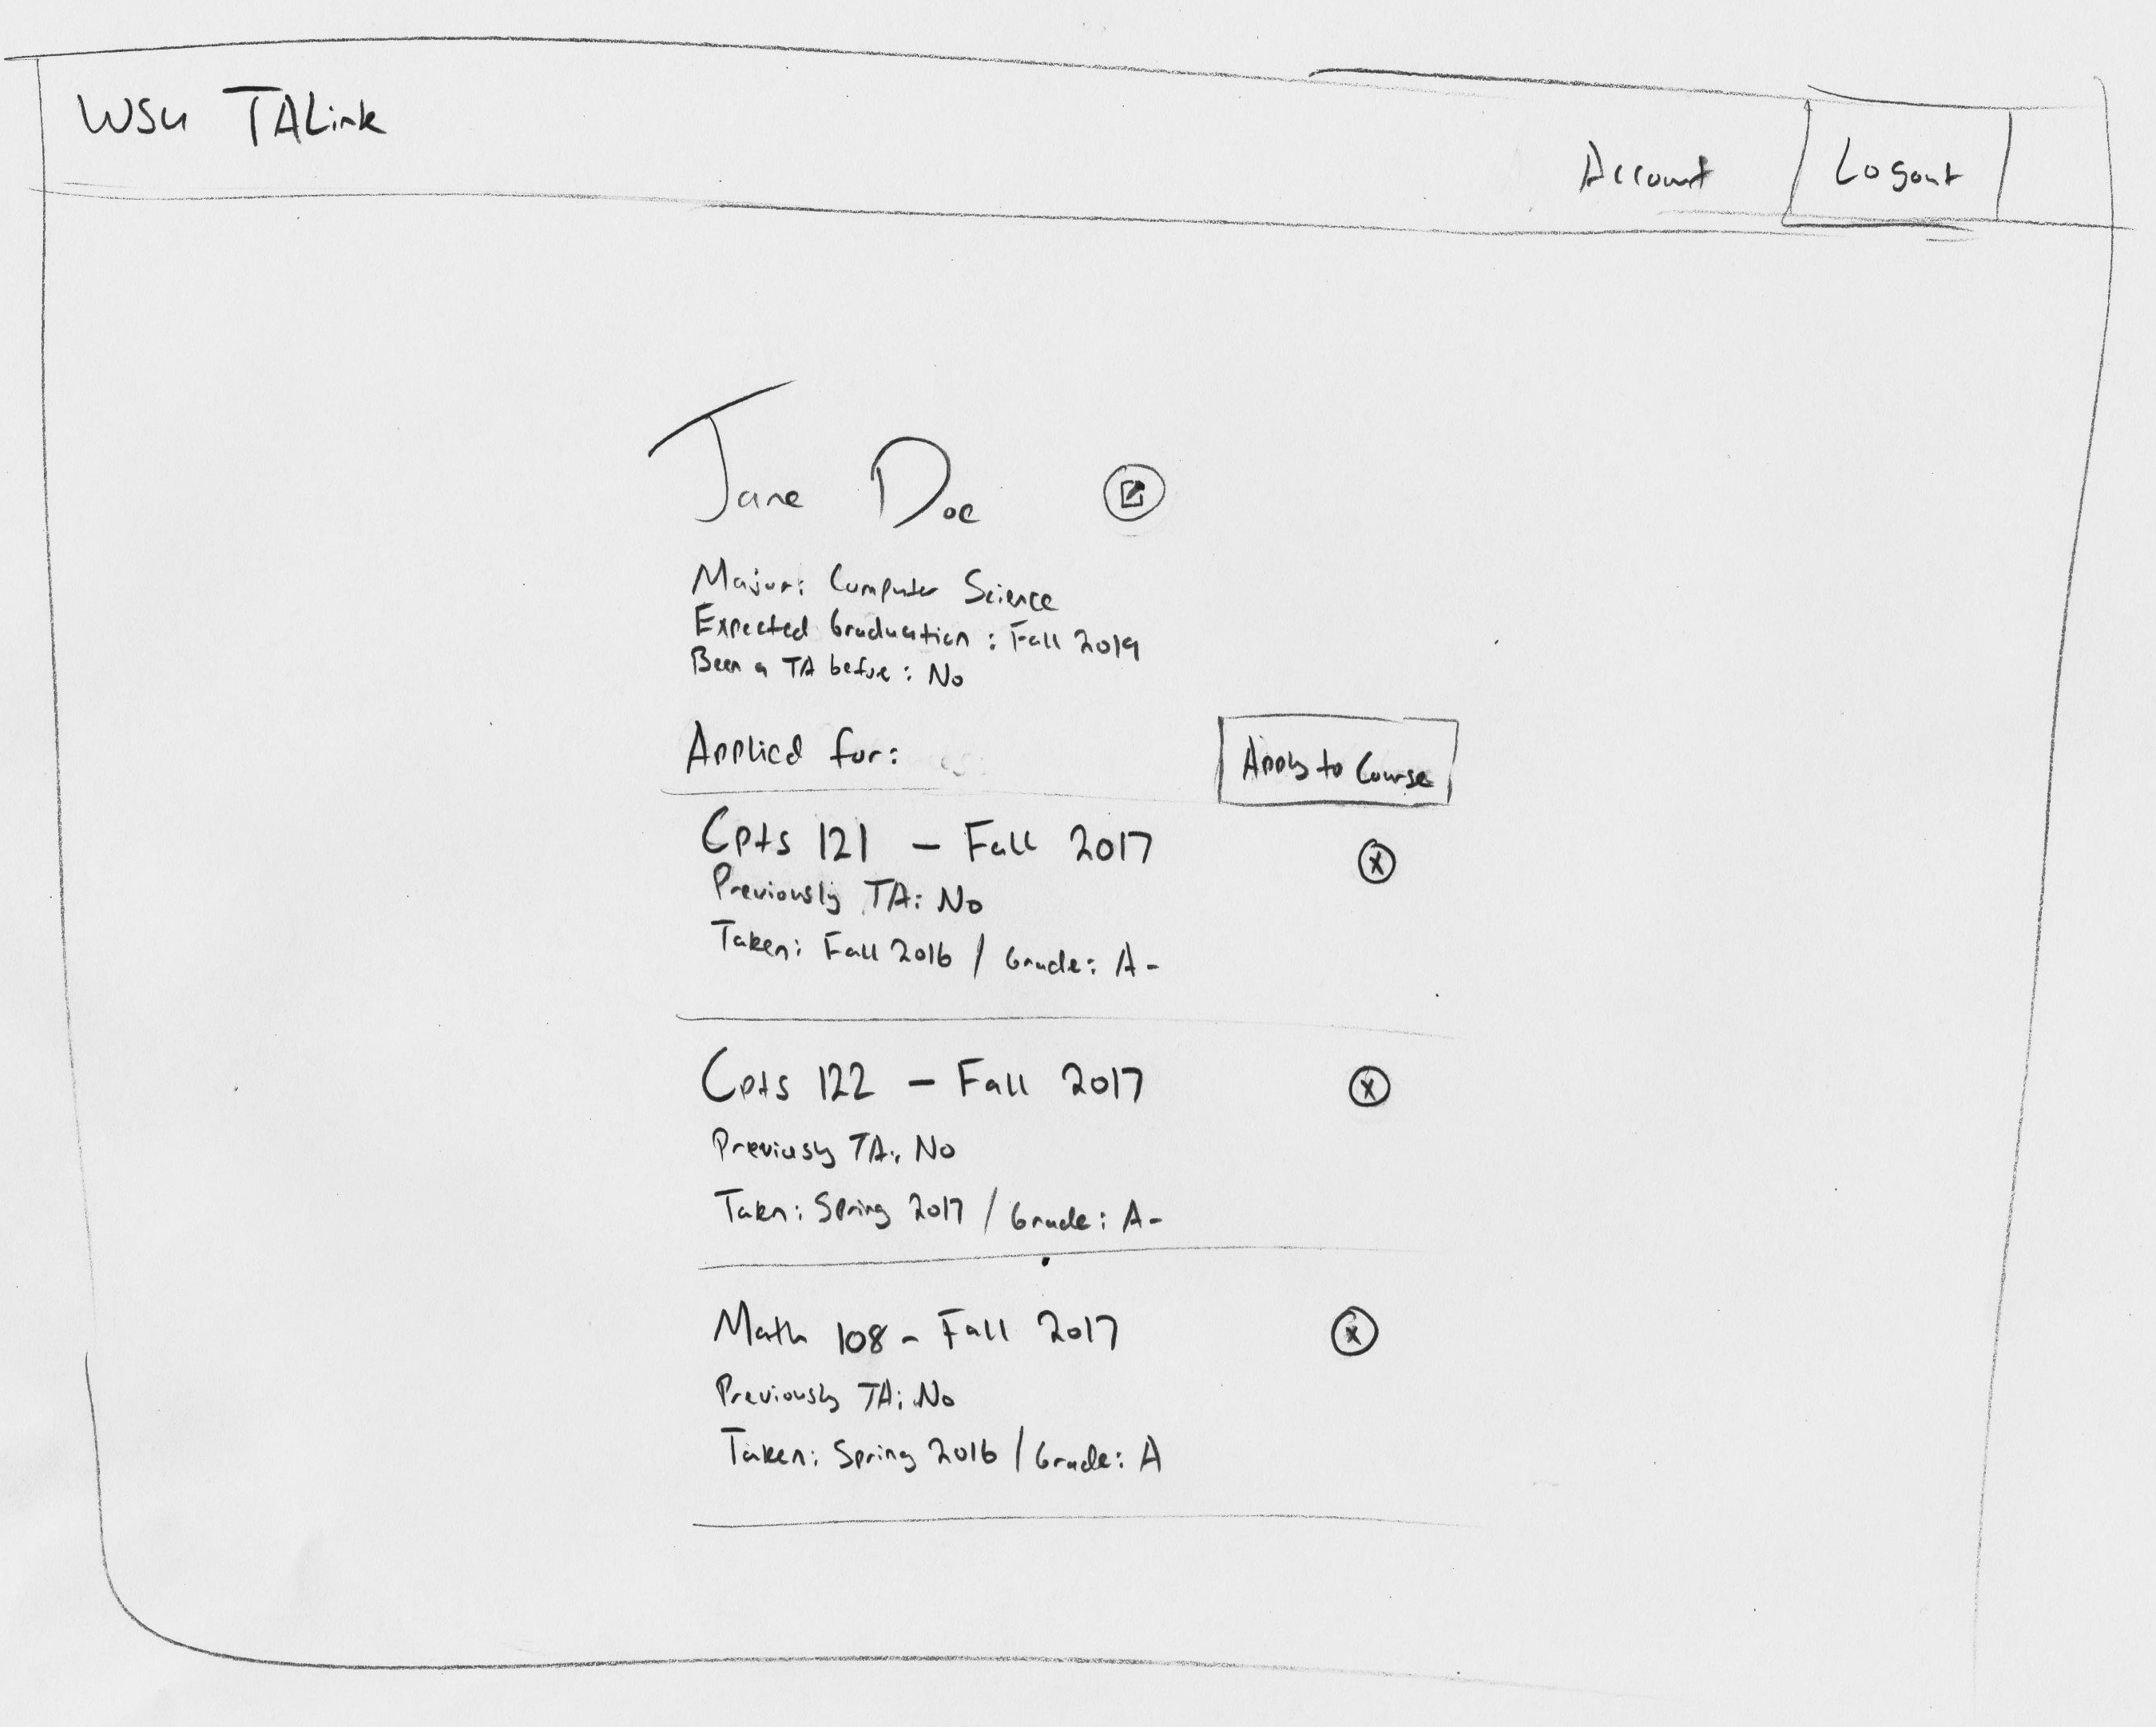 WSU TALink
Account
Logout
Jane Doe
Major: Computer Science
Expected Graduation: Fall 2019
Been a TA before: No
Applied for:
Apply to Course
Cpts 121 - Fall 2017
X
Previously TA: No
Taken: Fall 2016 / Grade: A-
Cpts 122 - Fall 2017
X
Previously TA: No
Taken: Spring 2017 / Grade: A-
Math 108 - Fall 2017
X
Previously TA: No
Taken: Spring 2016 / Grade: A